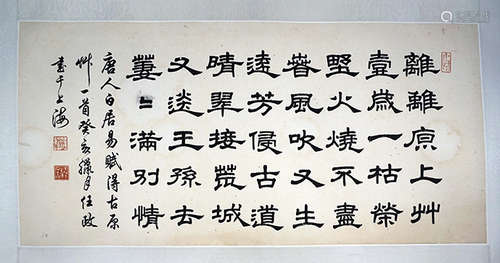 離離原上艸
壹歲一枯榮
野火燒不盡
春風吹又生
遠芳侵古道
晴翠接荒城
又送王孫去
萋〻滿別情
唐人白居易賦得古原
艸一首癸亥臘月任政
書于上海